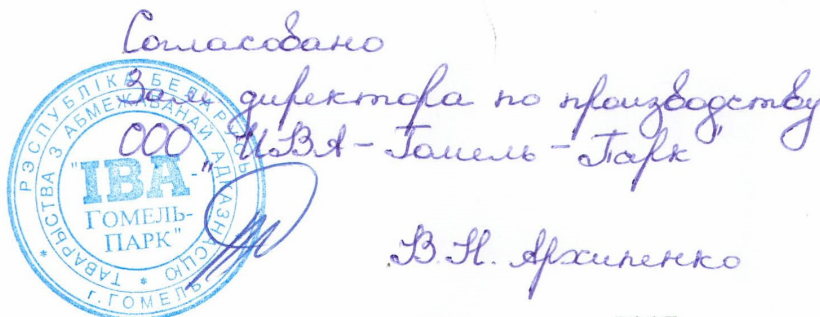 Согласовано
Зам. директора по производству
ООО "ИВА-Гомель-Парк"
В.Н. Архипенко
РЭСПУБЛІКА БЕЛАРУСЬ
ТАВАРЫСТВА З АБМЕЖАВАНАЙ АДКАЗНАСЦЮ
"IBA-
ГОМЕЛЬ-
ПАРК"
г. ГОМЕЛЬ